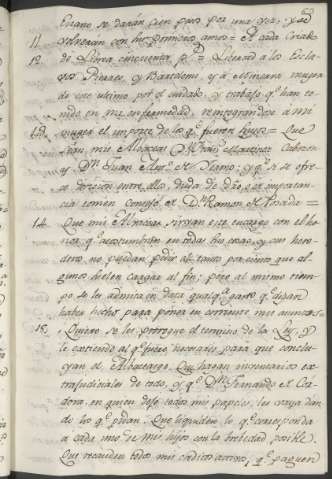 Encano se darán cien pesos por una vez, y se
11. volverán con sus primeros amos = A cada Criado
12. de Lima cincuenta p.s Libertad a los Escla-
vos Pedro, y Bartolomé, y a Mariano muger
de este ultimo por el cuidado, y trabajo q.e han te-
nido en mi enfermedad, reintegrandose a mi
13. muger el importe de los q.e fueren suyos = Que
sean mis Albaceas D.n Martinez Cabezon
y D.n Juan de Tramo; y q.e si se ofre-
ce division entre ellos, duda de Dño, o de importancia
tomen consejo de D.n Ramon de Rosas =
14. Que mis Albaceas sirvan este encargo con el ho-
nor, q.e acostumbran en todas sus cosas, y son here-
dero, no puedan pedir al tanto por ciento que al-
gunos suelen cargar al fin; pero al mismo tiem-
po se les admita en data qualq.a gasto q.e digan
haber hecho para poner en corriente mis cuentas =
15. Quiero se les prorrogue el termino de la Ley, y
le extiendo al q.e fuere necesario para que conclu-
yan el Albaceazgo. Que hagan inventarios ex-
trajudiciales de todo, y q.e D.n Fernando el Ca-
dora, en quien dejo todos mis papeles, les vaya dan-
do los q.e pidan. Que liquiden lo q.e corresponda
a cada uno de mis hijos con la brevedad posible.
Que recauden todos mis creditos activos, y q.e paguen